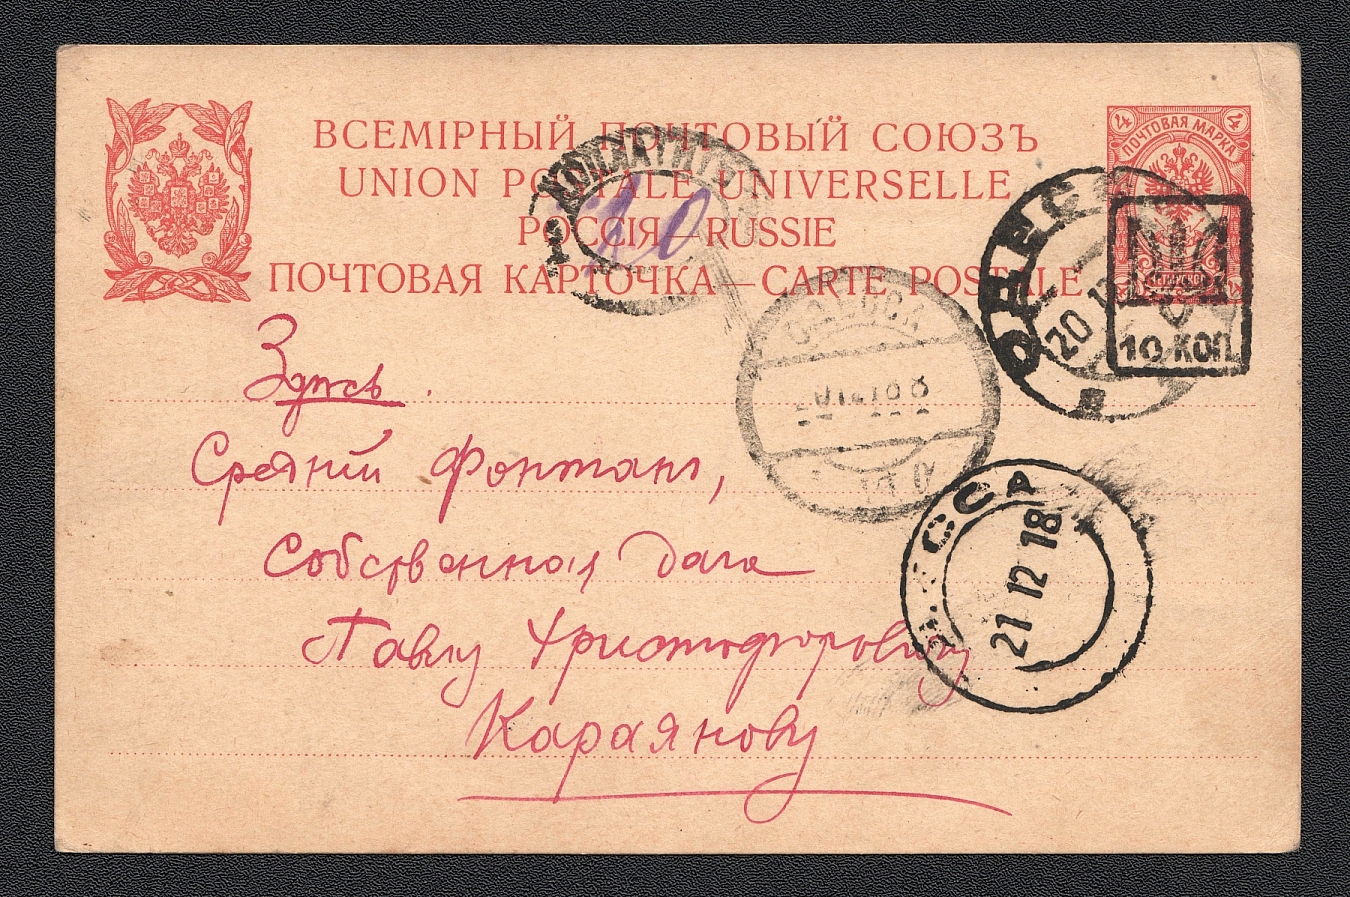 ВСЕМІРНЫЙ ПОЧТОВЫЙ СОЮЗЪ
UNION POSTALE UNIVERSELLE
РОССІЯ—RUSSIE
ПОЧТОВАЯ КАРТОЧКА—CARTE POSTALE
4 ПОЧТОВАЯ МАРКА 4
10 КОП.
ОДЕССА
20 12
10
21 12 18
ОДЕССА
Здѣсь.
Средній Фонтанъ,
Собственная дача
Павлу Христофоровичу
Караянову